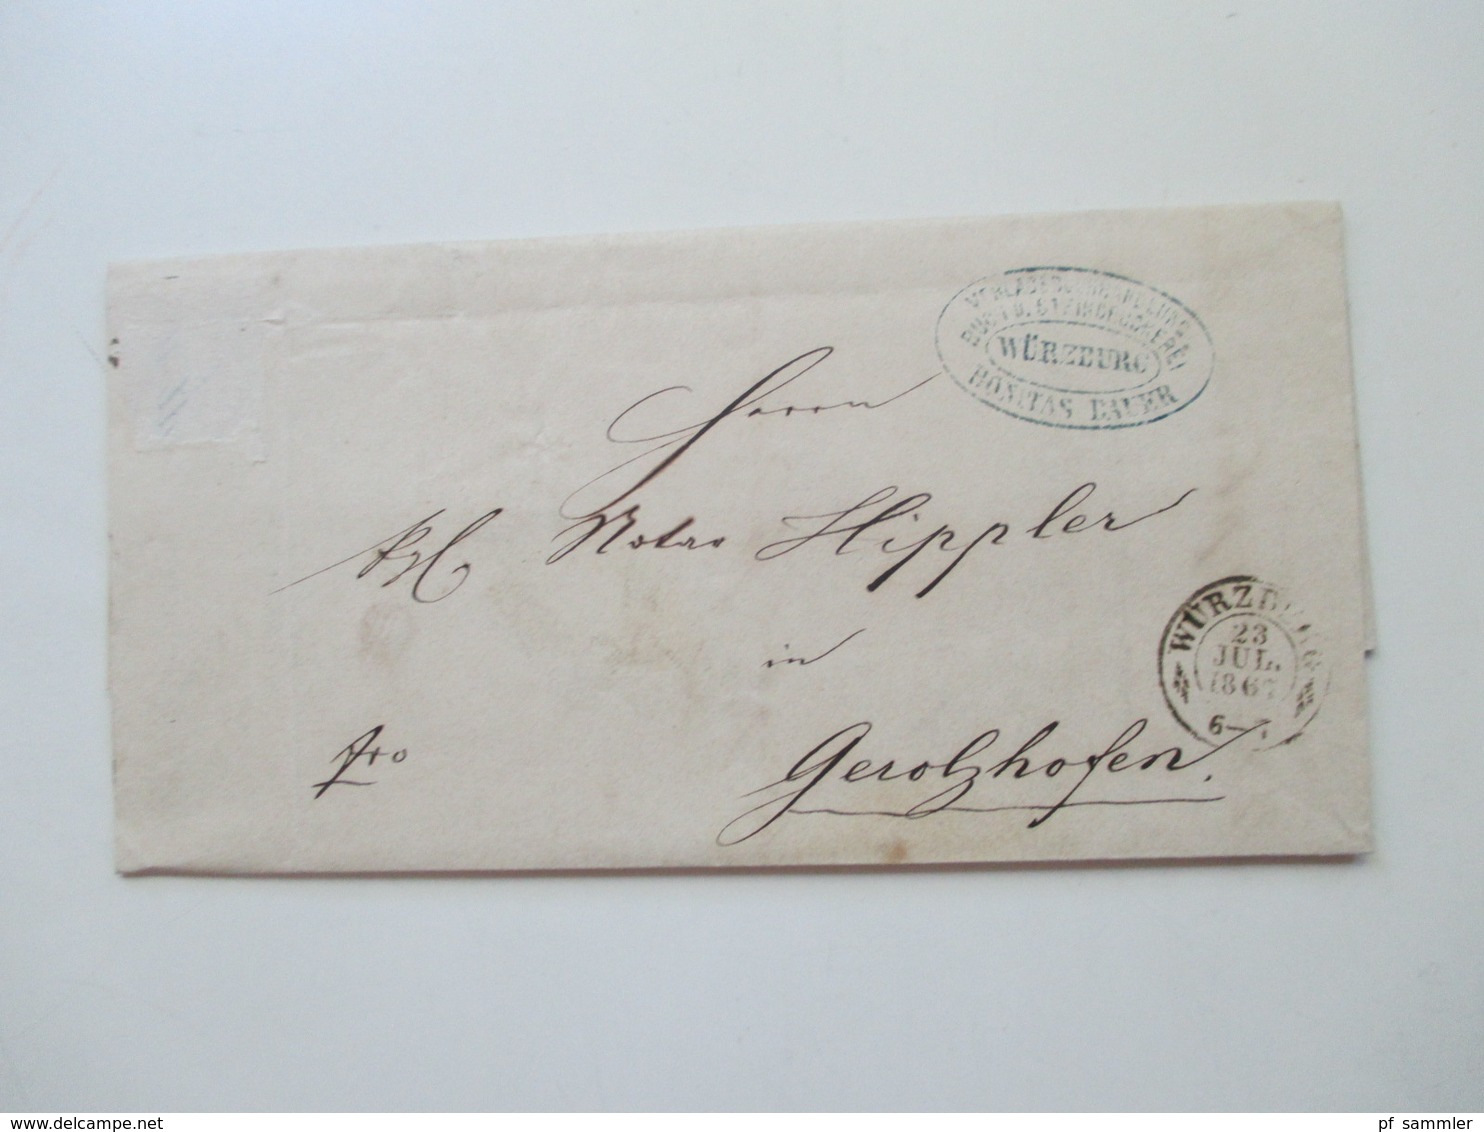 VERLAGSBUCHHANDLUNG
BUCH U. STEINDRUCKEREI
WÜRZBURG
BONITAS BAUER
Herrn
Kgl Notar Hippler
in
Gerolzhofen.
fro
WÜRZBURG
23
JUL.
1867
6-7
www.delcampe.net
pf_sammler